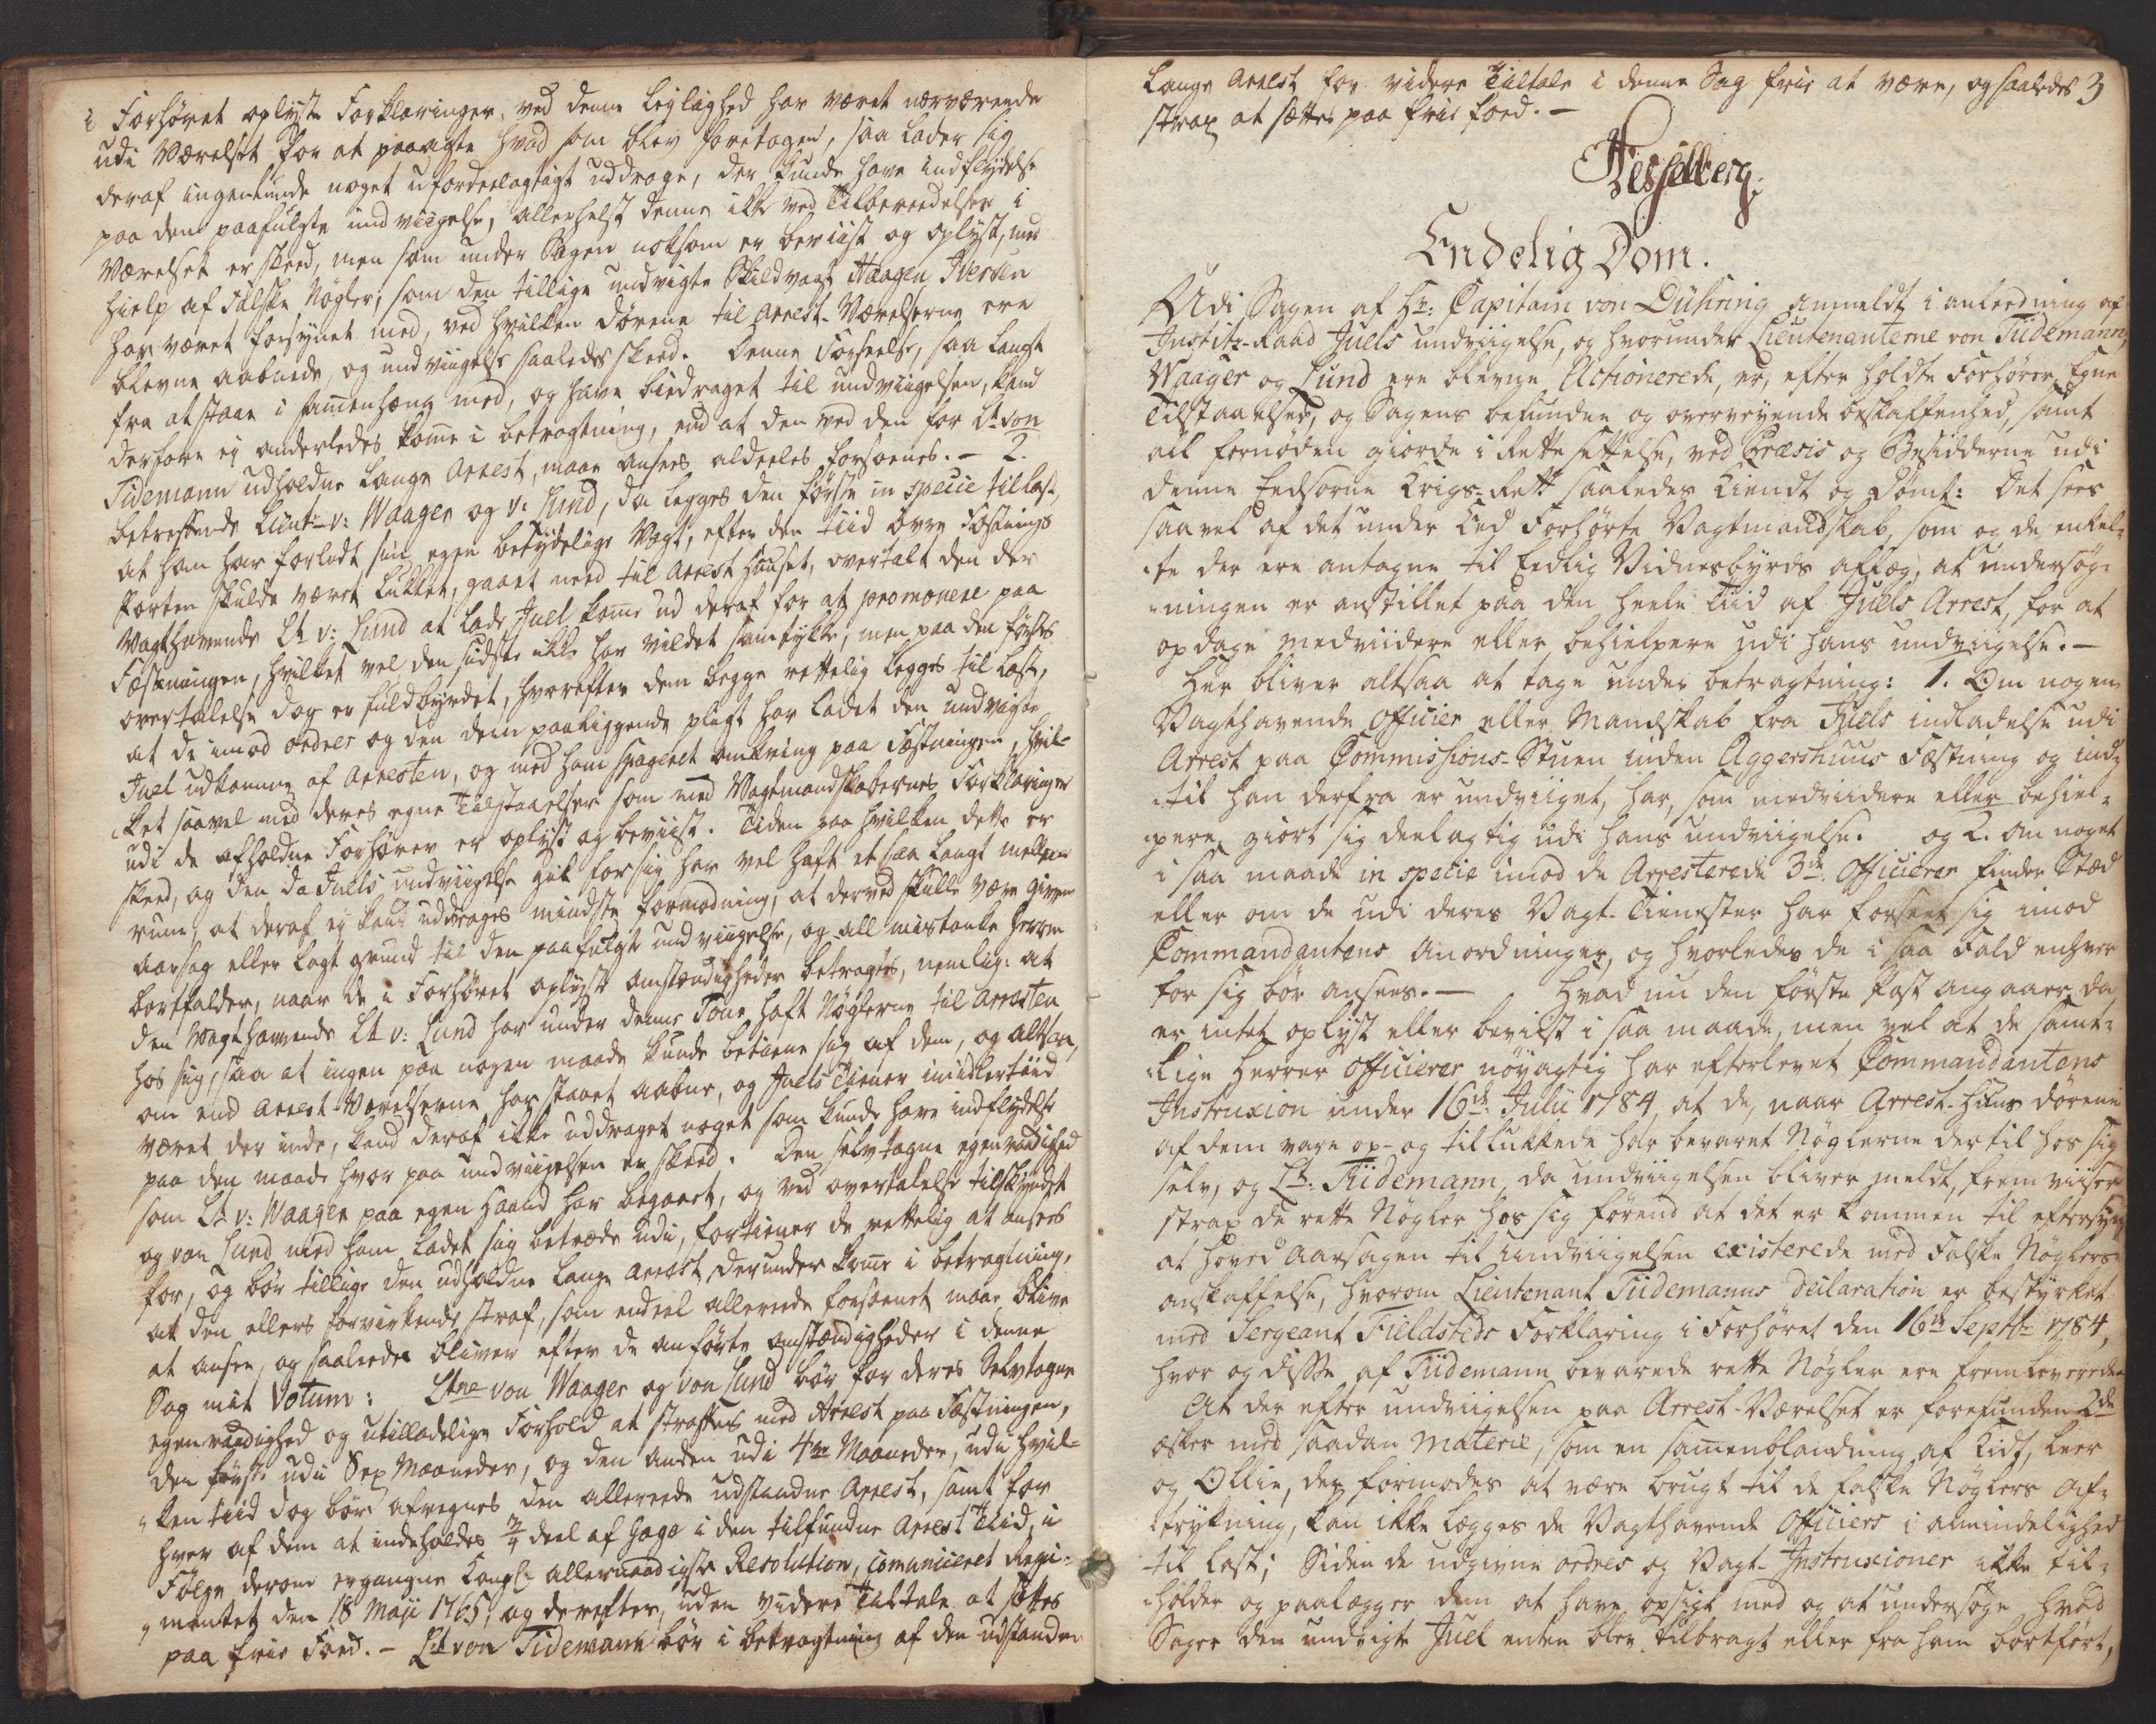 i Forhøret oplyste Forklaringer, ved denne leylighed har været nærværende
udi Værelset for at paaagte hvad som blev foretagen, saa lader sig
deraf ingenlunde noget ufordeelagtigt uddrage, der kunde have indflydelse
paa den paafulgte undviigelse, allerhelst denne ikke ved Tilberedelser i
Værelset er skeed, men som under Sagen noksom er beviist og oplyst, med
hielp af Falske Nøgler, som den tillige undvigte Skildvagt Haagen Iversen
har været forsynet med, ved hvilken dørene til Arrest-Værelserne ere
blevne aabnede, og undviigelse saaledes skeed. Denne Forseelse, saa langt
fra at staae i sammenhæng med, og have biedraget til undviigelsen, kand
derfore ej anderledes komme i betragtning, end at den ved den for Lt von
Tidemann udholdne lange Arrest, maae ansees aldeeles forsonet. - 2.
betreffende Lieut: v: Waager og v: Lund, da legges den første in specie til last,
at han har forladt sin egen betydelige Vagt, efter den tiid øvre Fæstnings
Porten skulde været lukket, gaaet need til Arrest Huuset, overtalt den der
Vagthavende Lt v: Lund at lade Juel komme ud deraf for at promovere paa
Fæstningen, hvilket vel den sidste ikke har vildet samtykke, men paa den førstes
overtalelse dog er fuldbyrdet, hvorefter dem begge rettelig legges til last,
at de imod ordres og den dem paaliggende pligt har ladet den undvigte
Juel udkomme af Arresten, og med ham spageret omkring paa Fæstningen, hvil-
ket saavel med deres egne Tilstaaelser som med Vagtmandskabernes Forklaringer
udi de afholdne Forhører er oplyst og beviist. Tiden paa hvilken dette er
skeed, og den da Juels undviigelse gik for sig har vel haft et saa langt mellem-
rum, at deraf ej kand uddrages mindste formodning, at derved skulle være given
aarsag eller lagt grund til den paafulgte undviigelse, og all mistanke herom
bortfalder, naar de i Forhøret oplyste omstændigheder betragtes, nemlig: at
den Vagthavende Lt v: Lund har under denne Tour haft Nøglerne til Arresten
hos sig, saa at ingen paa nogen maade kunde betiene sig af dem, og altsaa,
om end Arrest-Værelserne har staaet aabne, og Juels Tiener imidlertiid
været der inde, kand deraf ikke uddraget noget som kunde have indflydelse
paa den maade hvor paa undviigelsen er skeed. Den selvtagne egenraadighed
som Lt v: Waager paa egen haand har begaaet, og ved overtalelse tilskyndet
og von Lund med ham ladet sig betræde udi, fortiener de rettelig at ansees
for, og bør tillige den udholdne lange Arrest derunder komme i betragtning,
at den ellers forvirkende straf, som endeel allerede forsonet maae blive
at ansee, og saaledes bliver efter de anførte omstændigheder i denne
Sag mit Votum: Ltne von Waager og von Lund bør for deres Selvtagne
egenraadighed og utilladelige Forhold at straffes med Arrest paa Fæstningen,
den første udi Sex Maaneder, og den anden udi 4re Maaneder, udi hvil-
ken tiid dog bør afregnes den allerede udstandne Arrest, samt for
hver af dem at indeholdes 3/4 deel af Gage i den tilfundne Arrest Tiid, i
Følge derom ergangne Kongl: allernaadigste Resolution, comuniceret Regi-
mentet den 18 Maji 1765, og derefter, uden videre Tiltale at sættes
paa frie Foed. - Lt von Tidemann bør i betragtning af den udstandne
lange Arrest for videre Tiltale i denne Sag frie at være, og saaledes 3
strax at sættes paa frie foed. -
Hesselberg.
Endelig Dom.
Udi Sagen af Hr: Capitain von Dühring anmeldt i anleedning af
Justitz-Raad Juels undviigelse, og hvorunder Lieutenanterne von Tüdemann,
Waager og Lund ere blevne Actionerede, er, efter holdte Forhører, Egne
Tilstaaelser, og Sagens befundne og overveyende beskaffenhed, samt
all fornøden giorde i Rettesettelse, ved Præsis og Besidderne udi
denne Eedsorne Krigs-Rett saaledes Kiendt og Dømt: Det sees
saavel af det under Eed Forhørte Vagtmandskab, som og de enkel-
te der ere antagne til Eedlig Vidnesbyrds aflæg, at undersøg-
ningen er anstillet paa den heele Tiid af Juels Arrest, for at
opdage medviidere eller behielpere udi hans undviigelse. -
Her bliver altsaa at tage under betragtning: 1. Om nogen
Vagthavende officier eller Mandskab fra Juels indladelse udi
Arrest paa Commissions-Stuen inden Aggershuus Fæstning og ind-
til han derfra er undviiget, har, som medviidere eller behiel-
pere giort sig deelagtig udi hans undviigelse. og 2. om noget
i saa maade in specie imod de Arresterede 3de Officierer finder Stæd
eller om de udi deres Vagt-Tienester har forseet sig imod
Commandantens Anordninger, og hvorledes de i saa Fald enhver
for sig bør ansees. - Hvad nu den første Post angaaer, da
er intet oplyst eller bevilst i saa maade, men vel at de samt-
lige Herrer Officierer nøyagtig har efterlevet Commandantens
Instruxion under 16de Julii 1784, at de, naar Arrest-Huus dørene
af dem vare op- og tillukkede har bevaret Nøglerne dertil hos sig
selv, og Lt: Tüdemann, da undviigelsen bliver meldt, frem viiser
strax de rette Nøgler hos sig førend at det er kommen til eftersyn
at hoved Aarsagen til undviigelsen existerede med Falske Nøglers
anskaffelse, hvorom Lieutenant Tüdemanns Declaration er bestyrket
med Sergeant Fieldsteds Forklaring i Forhøret den 16de Septbr 1784,
hvor og disse af Tüdemann bevarede rette Nøgler ere fremleverede.
At der efter undviigelsen paa Arrest-Værelset er forefunden 2de
æsker med saadan Materie, som en samenblandning af Kidt, leer
og Ollie, der formodes at være brugt til de falske Nøglers Af-
trykning, kan ikke lægges de Vagthavende Officiers i almindelighed
til last; Siden de udgivne ordres og Vagt-Instruxioner ikke til-
holder og paalægger dem at have opsigt med og at undersøge hvad
Sager den undvigte Juel enten blev tilbragt eller fra ham bortført,